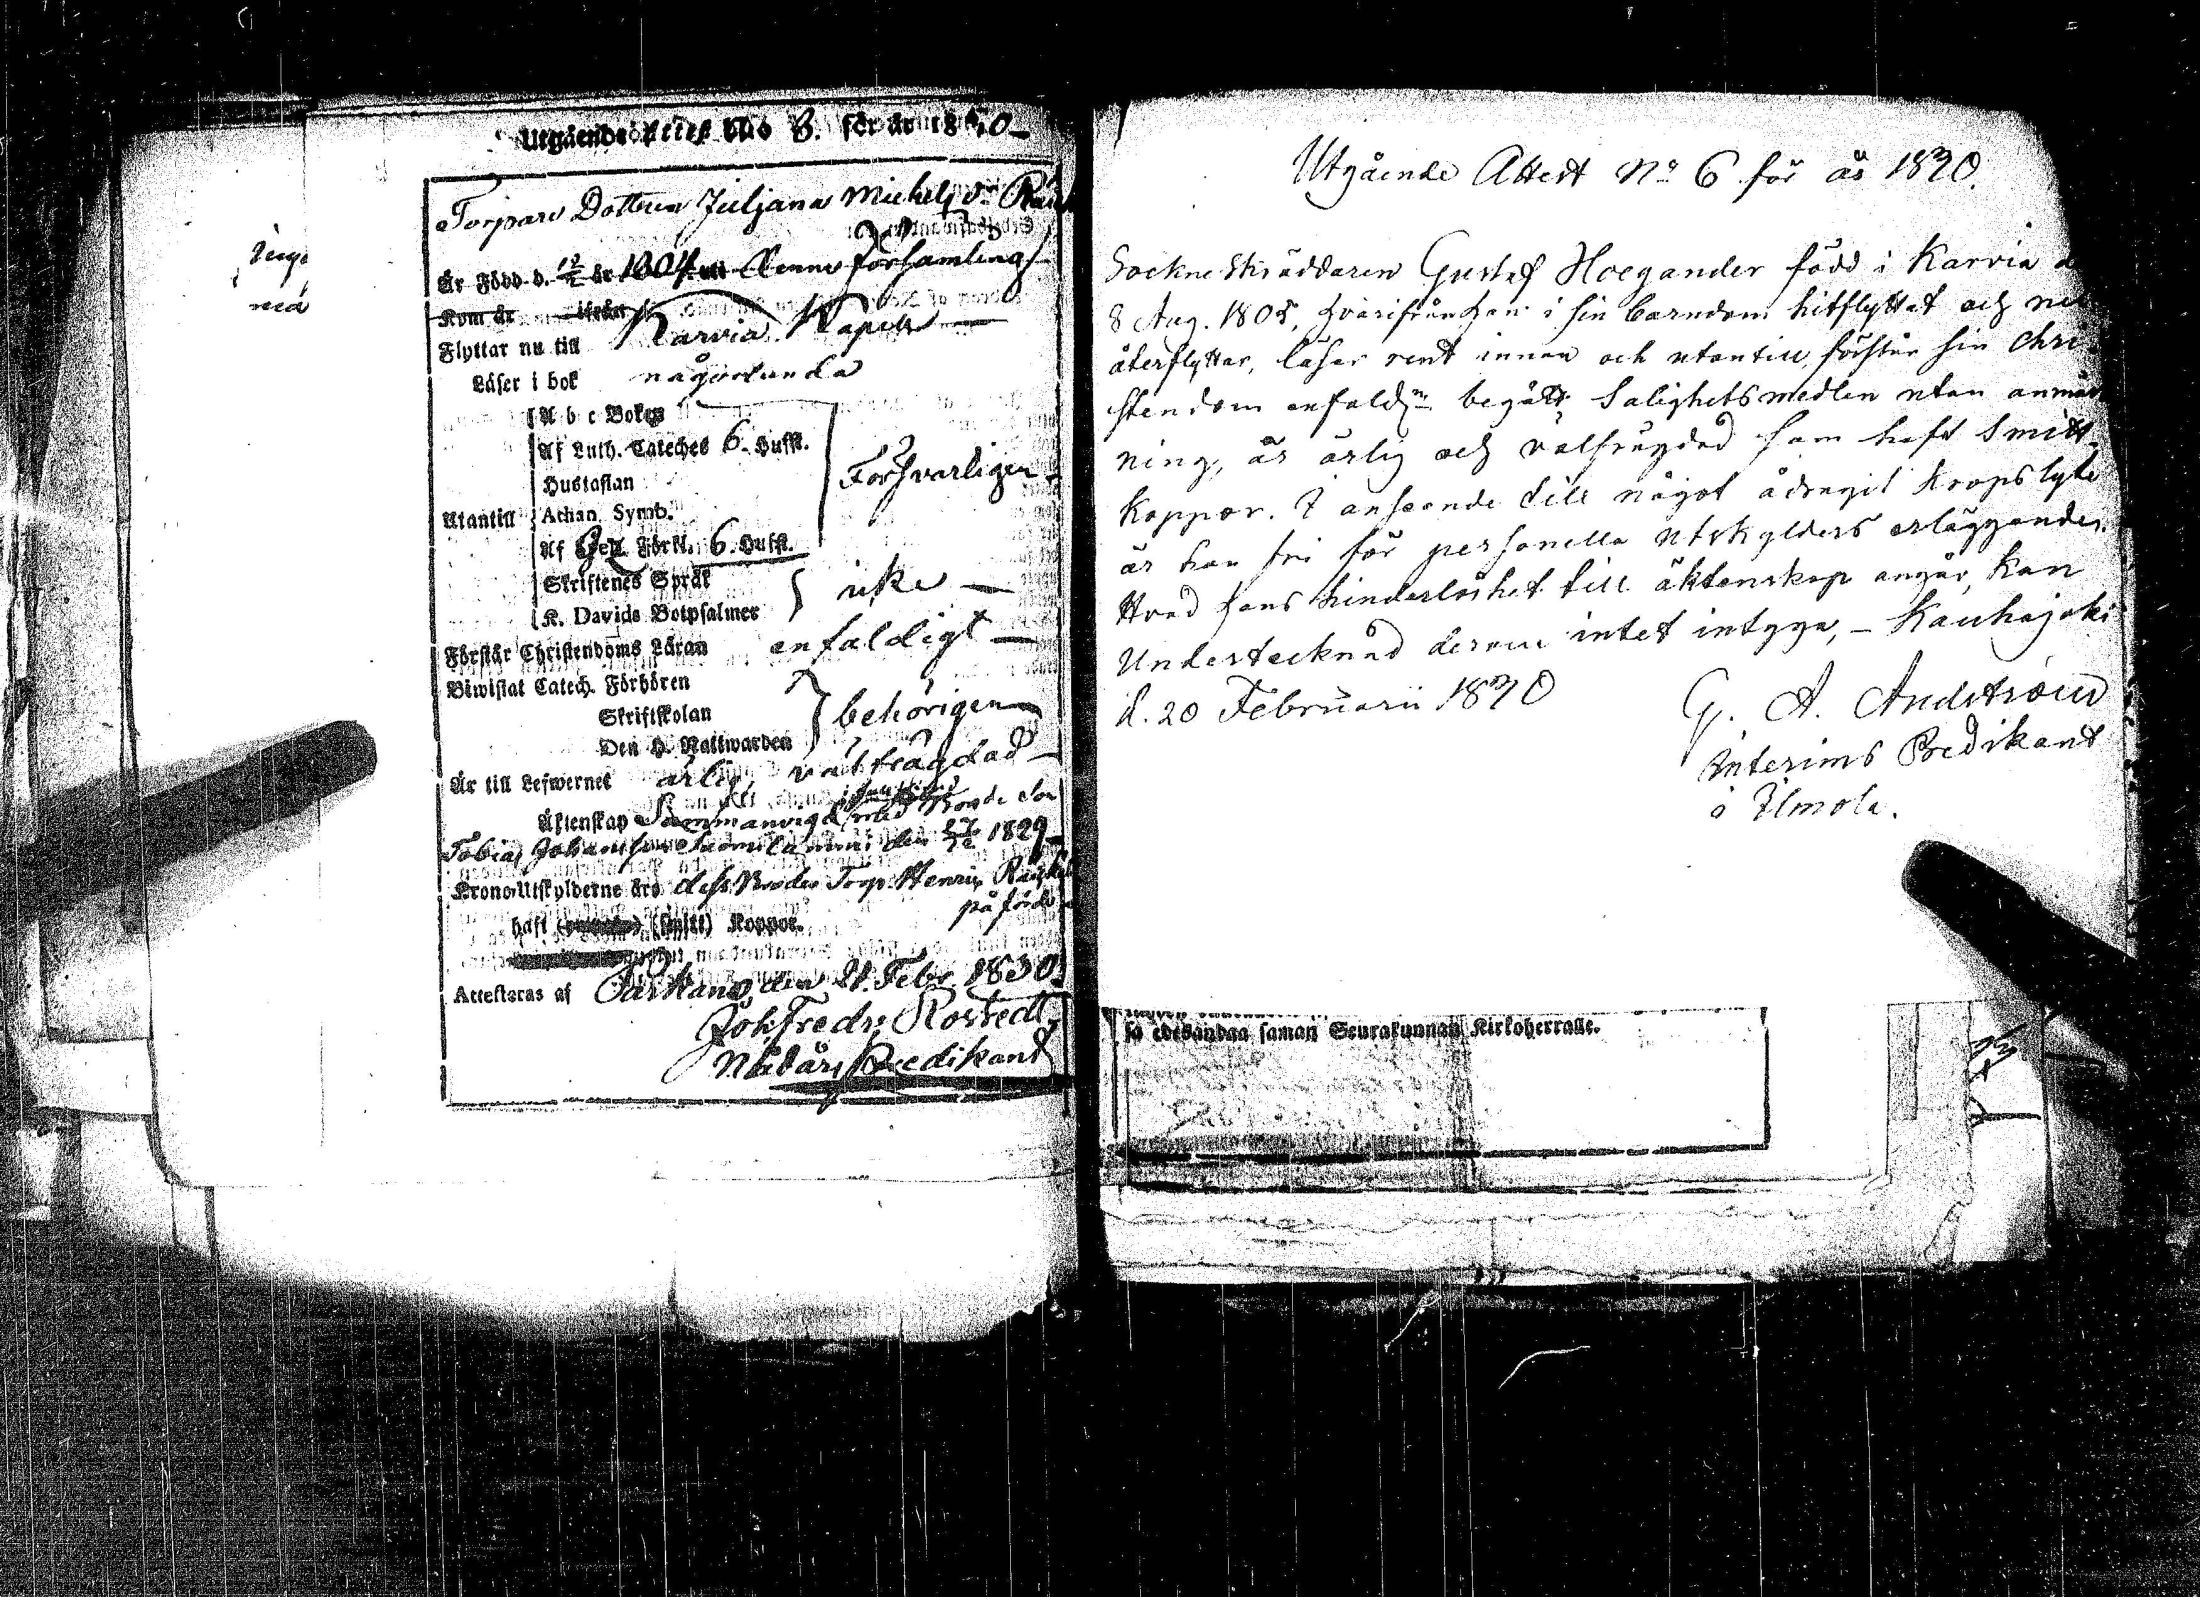 Utgående Attest No 8. för år 1830
Torpare Dottren Juljana Michels dr
Är Född d. 12/2 år 1804 uti denne församling
Kom år ifrån
Flyttar nu till Karvia Kapell
Läser i bok någorlunda
A b c Boken
Af Luth. Cateches 6. Hufst.
Hustaflan
Försvarligen
Utantill Athan. Symb.
Af Förkl. 6. Hufst.
Skriftenes Språk
icke
K. Davids Botpsalmer
Förstår Christendoms Läran enfaldigt
Biwistat Catech. Förhören
Skriftskolan
behörigen
Den H. Nattwarden
Är till Lefwernet ärlig, välfrägdad
Äktenskap Sammanvigd med Bonde Son
Tobias Johansson den 27/12 1829
Krono-Utskylderne äro dess Broder Torp. Henric
på förde
haft (smitt) Koppor.
Attesteras af Parkano den 21. Febr. 1830
Joh. Fredr. Rostedt
Nådårs Predikant
Utgående Attest No 6 för år 1830.
Sockne Skräddaren Gustaf Hoegander född i Karvia d
8 Aug. 1805, hvarifrån han i sin barndom hitflyttat och nu
återflyttar, läser rent innan och utantill, förstår sin Chri-
stendom enfaldn begått Salighetsmedlen utan anmär
ning, är ärlig och välfrägdad samt haft Smitt-
koppor. I anseende till något ådragit kropslyte
är han fri för personella utskylders erläggande.
Hvad hans hinderlöshet till äktenskap angår, kan
Undertecknad derom intet intyga, – Kauhajoki
d. 20 Februarii 1830
G. A. Andström
Interims Predikant
i Ilmola.
ja edeskandaa saman Seurakunnan Kirkoherralle.